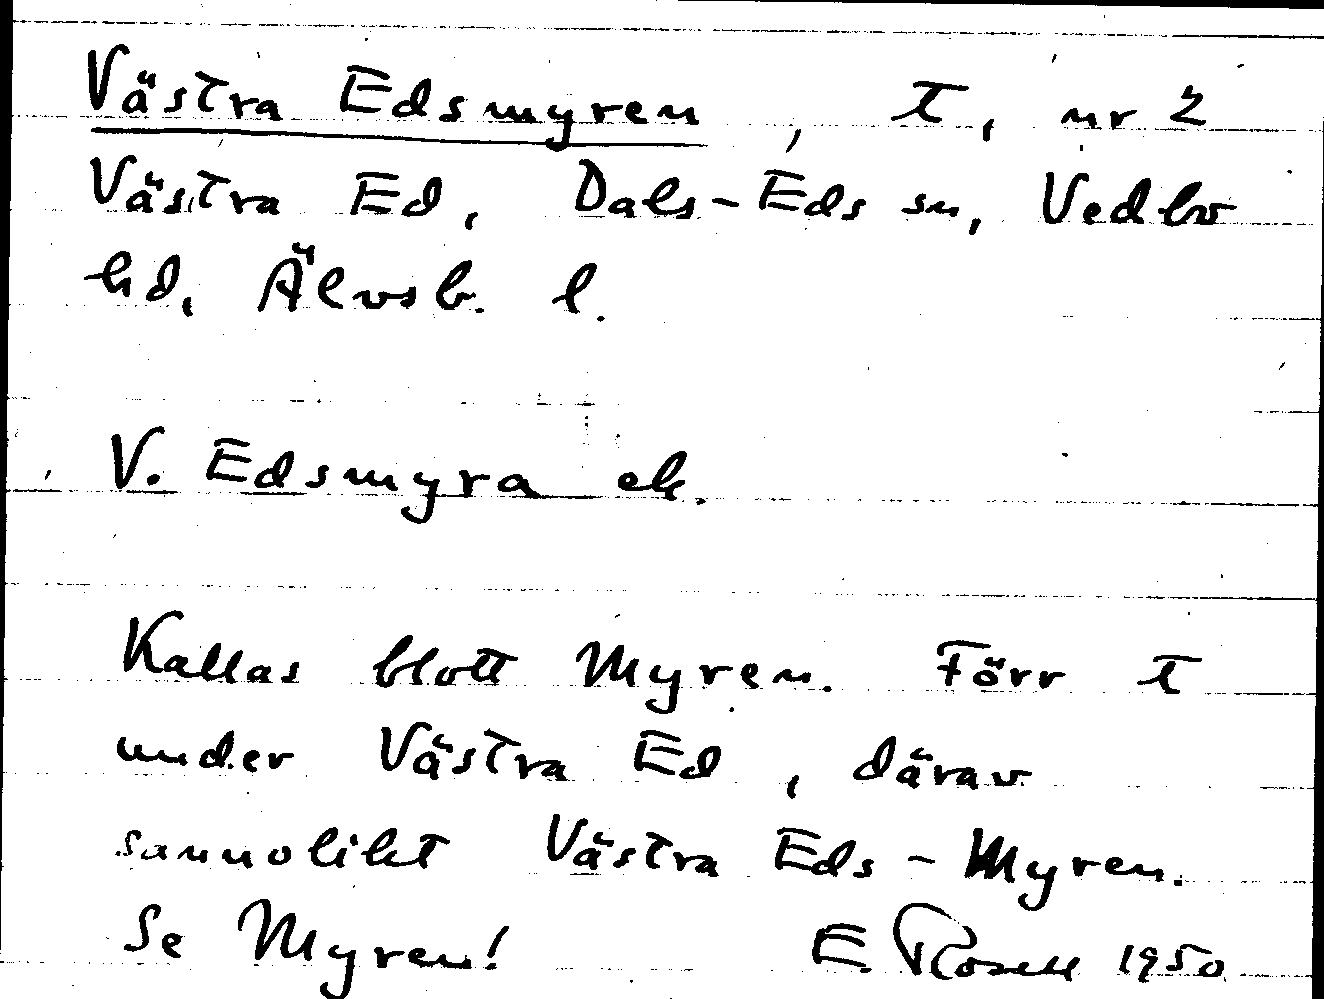 Västra Edsmyren, t, nr 2
Västra Ed, Dals-Eds sn, Vedbo
hd, Älvsb. l.
V. Edsmyra ek.
Kallas blott Myren. Förr t
under Västra Ed, därav
sannolikt Västra Eds-Myren.
Se Myren! E. Rosell 1950